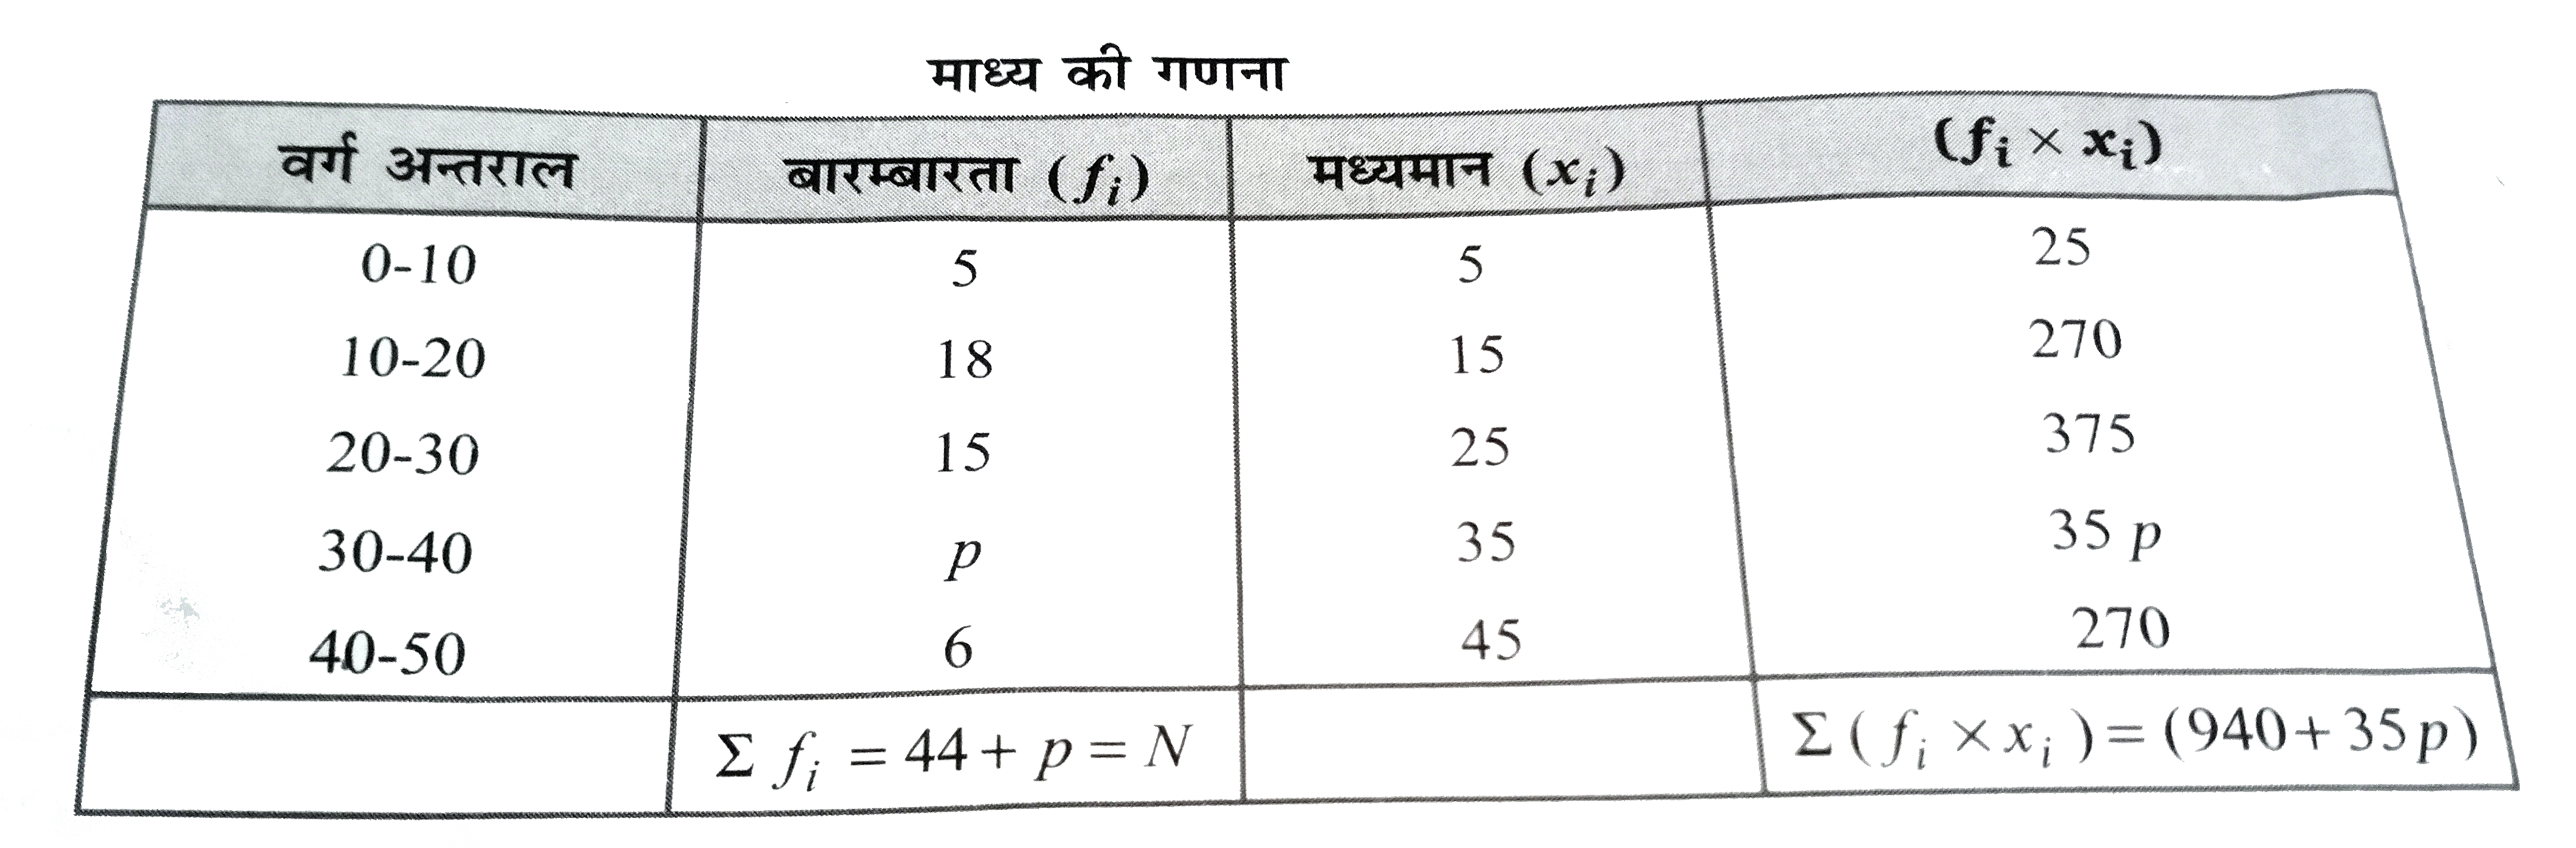 माध्य की गणना
वर्ग अन्तराल बारम्बारता (f_i) मध्यमान (x_i) (f_i × x_i)
0-10 5 5 25
10-20 18 15 270
20-30 15 25 375
30-40 p 35 35 p
40-50 6 45 270
Σ f_i = 44 + p = N Σ (f_i × x_i) = (940 + 35 p)